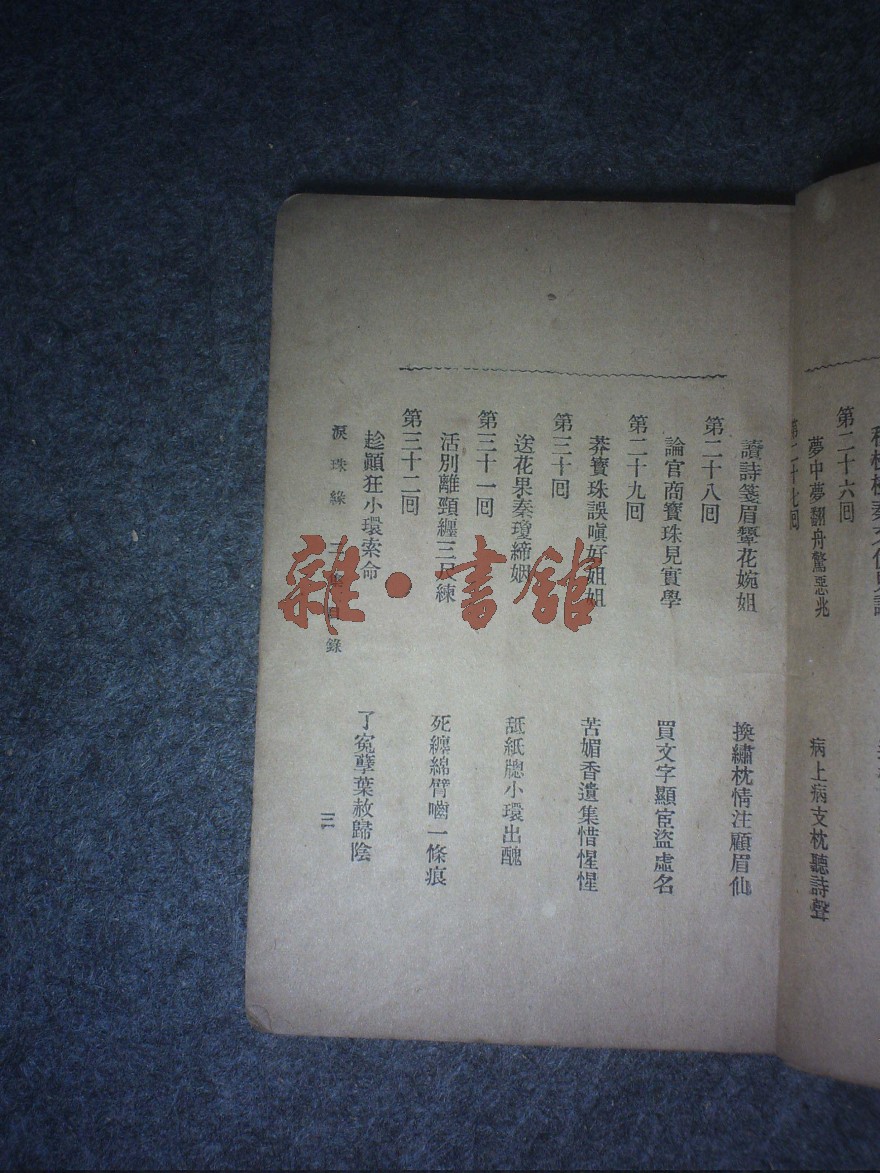 第二十六回
夢中夢翻舟驚惡兆 病上病支枕聽詩聲
第二十七回
讀詩箋眉顰花婉姐 換繡枕情注顧眉仙
第二十八回
論官商寶珠見實學 買文字顯宦盜虛名
第二十九回
莽寶珠誤嗔好姐姐 苦媚香遺集惜惺惺
第三十回
送花果秦瓊締姻 舐紙牕小環出醜
第三十一回
活別離頸纏三尺練 死纏綿臂嚙一條痕
第三十二回
趁顚狂小環索命 了寃孽葉赦歸陰
淚珠緣 錄 三
雜·書館